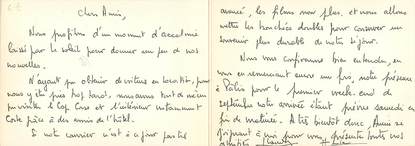 Chers Amis,
Nous profitons d'un moment d'accalmie
laissé par le soleil pour donner un peu de nos
nouvelles.
N'ayant pu obtenir de voiture en location, pour
nous y être pris trop tard, nous avons tout de même
pu visiter le Cap Corse et l'intérieur notamment
Corte grâce à des amis de l'hôtel.
Si notre courrier n'est à ce jour pas très
avancé, les films non plus, et nous allons
mettre les bouchées doubles pour conserver un
souvenir plus durable de notre séjour.
Nous vous confirmons bien entendu, en
vous en remerciant encore une fois, notre présence
à Paris pour le premier week-end de
septembre notre arrivée étant prévue samedi en
fin de matinée. A très bientôt donc, Annie se
joignant à moi pour vous présenter toutes nos
amitiés